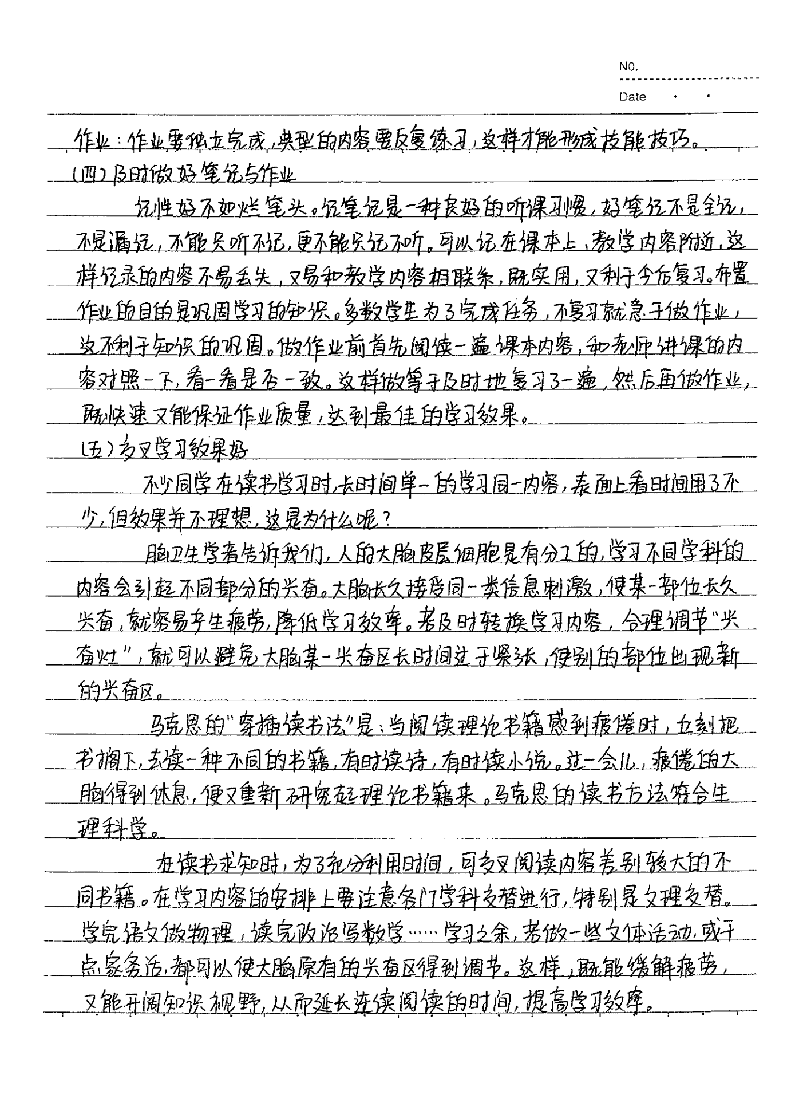 No.
Date
作业：作业要独立完成，典型的内容要反复练习，这样才能形成技能技巧。
(四)及时做好笔记与作业
记性好不如烂笔头。记笔记是一种良好的听课习惯，好笔记不是全记，
不是漏记，不能只听不记，更不能只记不听。可以记在课本上、教学内容附近，这
样记录的内容不易丢失，又易和教学内容相联系，既实用，又利于今后复习。布置
作业的目的是巩固学习的知识。多数学生为了完成任务，不复习就急于做作业，
这不利于知识的巩固。做作业前首先阅读一遍课本内容，和老师讲课的内
容对照一下，看一看是否一致。这样做等于及时地复习了一遍，然后再做作业，
既快速又能保证作业质量，达到最佳的学习效果。
(五)交叉学习效果好
不少同学在读书学习时，长时间单一的学习同一内容，表面上看时间用了不
少，但效果并不理想，这是为什么呢？
脑卫生学者告诉我们，人的大脑皮层细胞是有分工的，学习不同学科的
内容会引起不同部分的兴奋。大脑长久接受同一类信息刺激，使某一部位长久
兴奋，就容易产生疲劳，降低学习效率。若及时转换学习内容，合理调节“兴
奋灶”，就可以避免大脑某一兴奋区长时间过于紧张，使别的部位出现新
的兴奋区。
马克思的“穿插读书法”是：当阅读理论书籍感到疲倦时，立刻把
书搁下，去读一种不同的书籍，有时读诗，有时读小说。过一会儿，疲倦的大
脑得到休息，便又重新研究起理论书籍来。马克思的读书方法符合生
理科学。
在读书求知时，为了充分利用时间，可交叉阅读内容差别较大的不
同书籍。在学习内容的安排上要注意各门学科交替进行，特别是文理交替。
学完语文做物理，读完政治写数学……学习之余，若做一些文体活动，或干
点家务活，都可以使大脑原有的兴奋区得到调节。这样，既能缓解疲劳，
又能开阔知识视野，从而延长连续阅读的时间，提高学习效率。